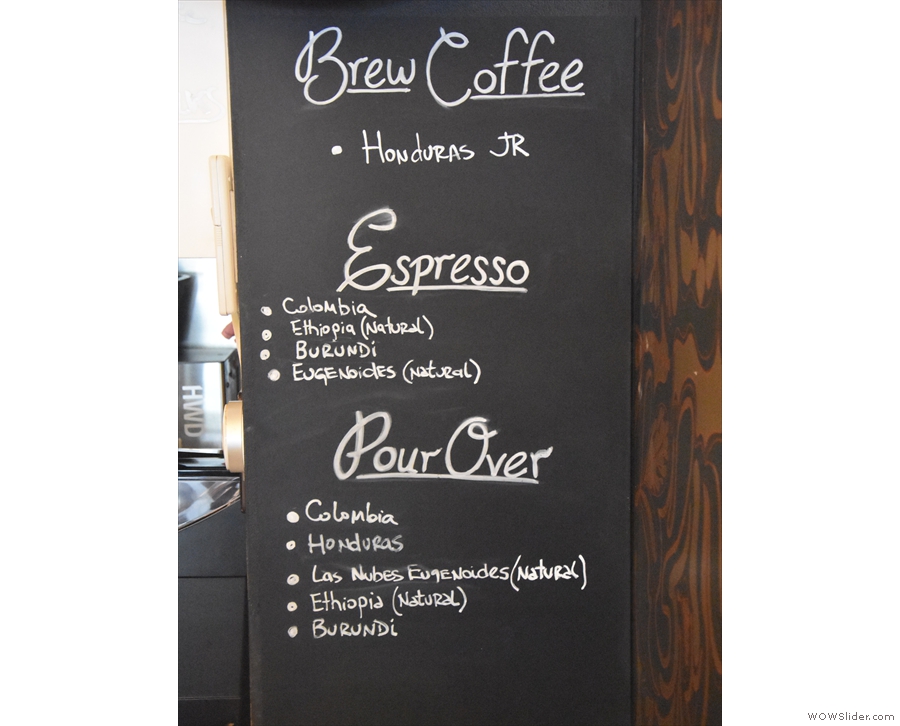 Brew Coffee
• Honduras JR
Espresso
• Colombia
• Ethiopia (Natural)
• Burundi
• Eugenoides (Natural)
HWD
Pour Over
• Colombia
• Honduras
• Las Nubes Eugenoides (Natural)
• Ethiopia (Natural)
• Burundi
WOWSlider.com